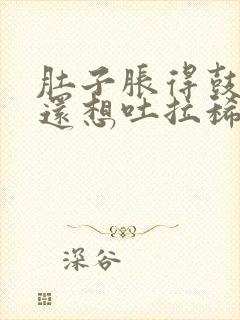 肚子脹得鼓
還想吐拉稀
深谷